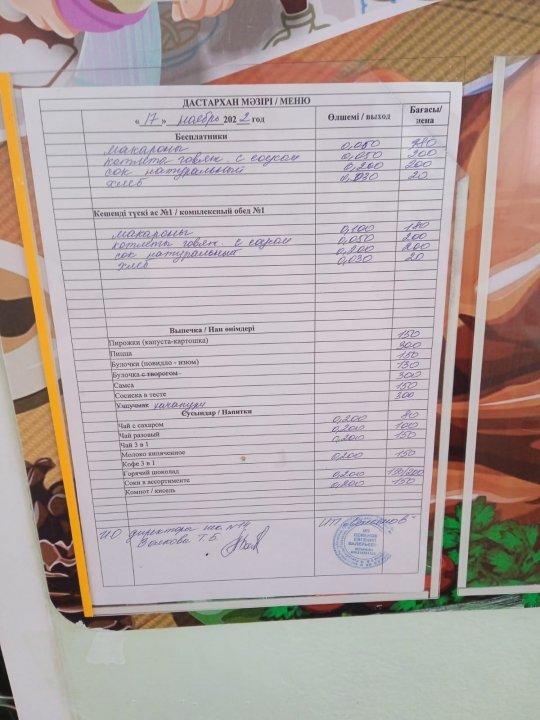 ДАСТАРХАН МӘЗІРІ / МЕНЮ
« 17 » ноябрь 2022 год Өлшемі / выход Бағасы/ цена
Бесплатники
макароны 0,050
котлета говяж. с соусом 0,050 200
сок натуральный 0,200 200
хлеб 0,030 20
Кешенді түскі ас №1 / комплексный обед №1
макароны 0,100 180
котлеты говяж. с сыром 0,050 200
сок натуральный 0,200 200
хлеб 0,030 20
Выпечка / Нан өнімдері
Пирожки (капуста-картошка) 150
Пицца 300
Булочки (повидло - изюм) 150
Булочка с творогом 130
Самса 300
Сосиска в тесте 150
Учпучмак хачапури 300
Сусындар / Напитки
Чай с сахаром 0,200 80
Чай разовый 0,200 100
Чай 3 в 1 0,200 150
Молоко кипяченное
Кофе 3 в 1 0,200 150
Горячий шоколад
Соки в ассортименте 0,200 150/200
Компот / кисель 0,200 150
ИО директора шк. №14
Волкова Т.Б.
ИП